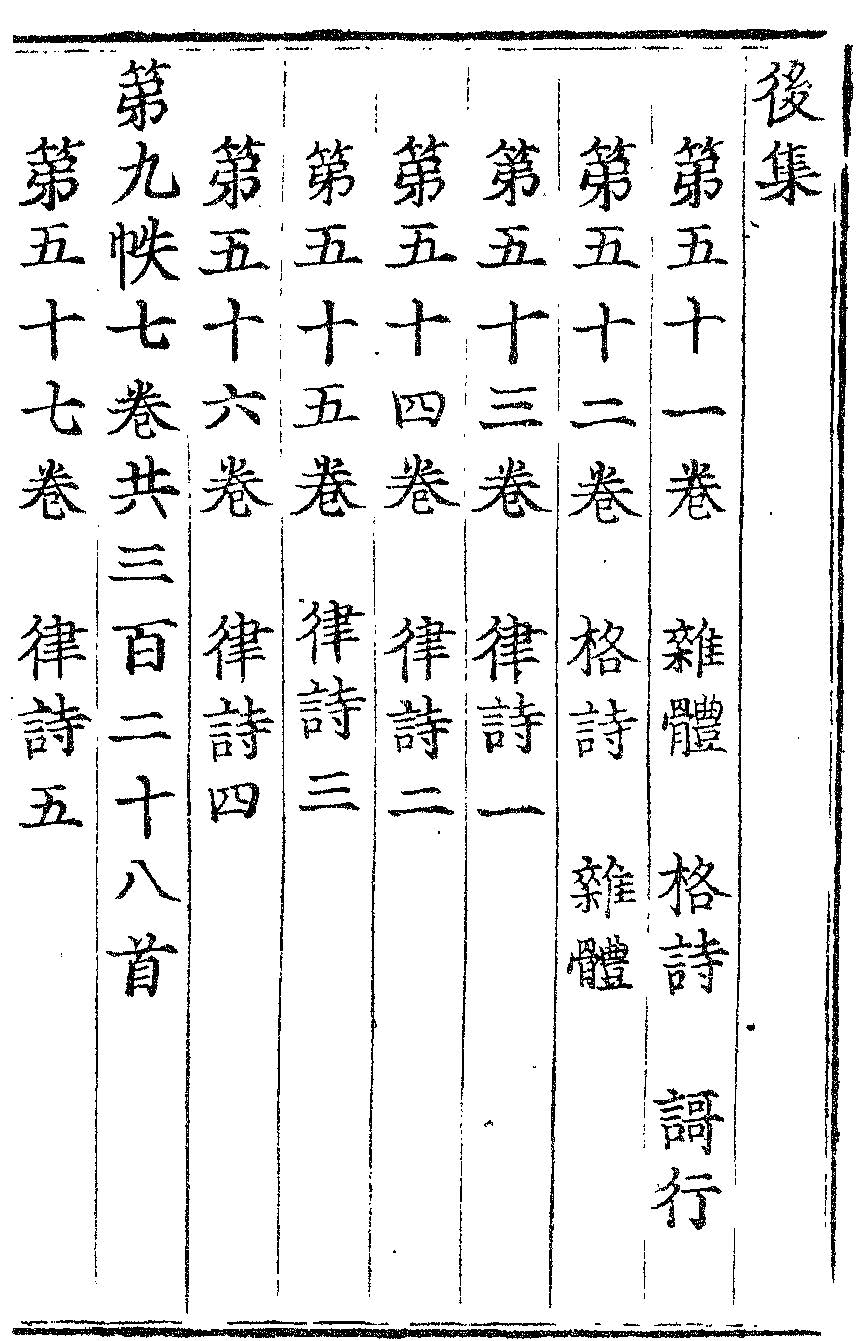 後集
第五十一卷　雜體　格詩　謌行
第五十二卷　格詩　雜體
第五十三卷　律詩一
第五十四卷　律詩二
第五十五卷　律詩三
第五十六卷　律詩四
第九帙七卷共三百二十八首
第五十七卷　律詩五